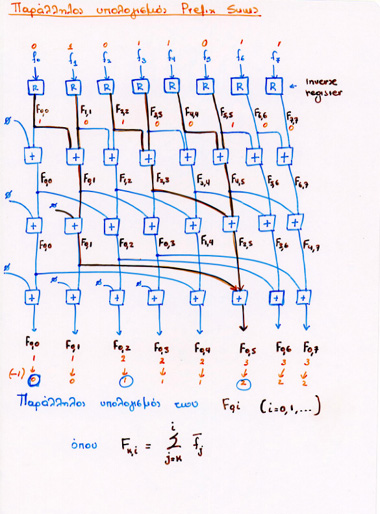 Παράλληλος υπολογισμός Prefix Sums
0 1 0 1 1 0 1 1
f₀ f₁ f₂ f₃ f₄ f₅ f₆ f₇
R R R R R R R R ← Inverse register
F₀,₀ F₁,₁ F₂,₂ F₃,₃ F₄,₄ F₅,₅ F₆,₆ F₇,₇
1 0 1 0 0 1 0 0
∅ + + + + + + + +
F₀,₀ F₀,₁ F₁,₂ F₂,₃ F₃,₄ F₄,₅ F₅,₆ F₆,₇
∅ ∅ + + + + + + + +
F₀,₀ F₀,₁ F₀,₂ F₀,₃ F₁,₄ F₂,₅ F₃,₆ F₄,₇
∅ ∅ ∅ ∅ + + + + + + + +
F₀,₀ F₀,₁ F₀,₂ F₀,₃ F₀,₄ F₀,₅ F₀,₆ F₀,₇
1 1 2 2 2 3 3 3
(-1) ↓ ↓ ↓ ↓ ↓ ↓ ↓ ↓
0 0 1 1 1 2 2 2
Παράλληλος υπολογισμός των F₀,ᵢ (i=0,1,...)
όπου Fₖ,ᵢ = Σ f̄ⱼ
i
j=κ